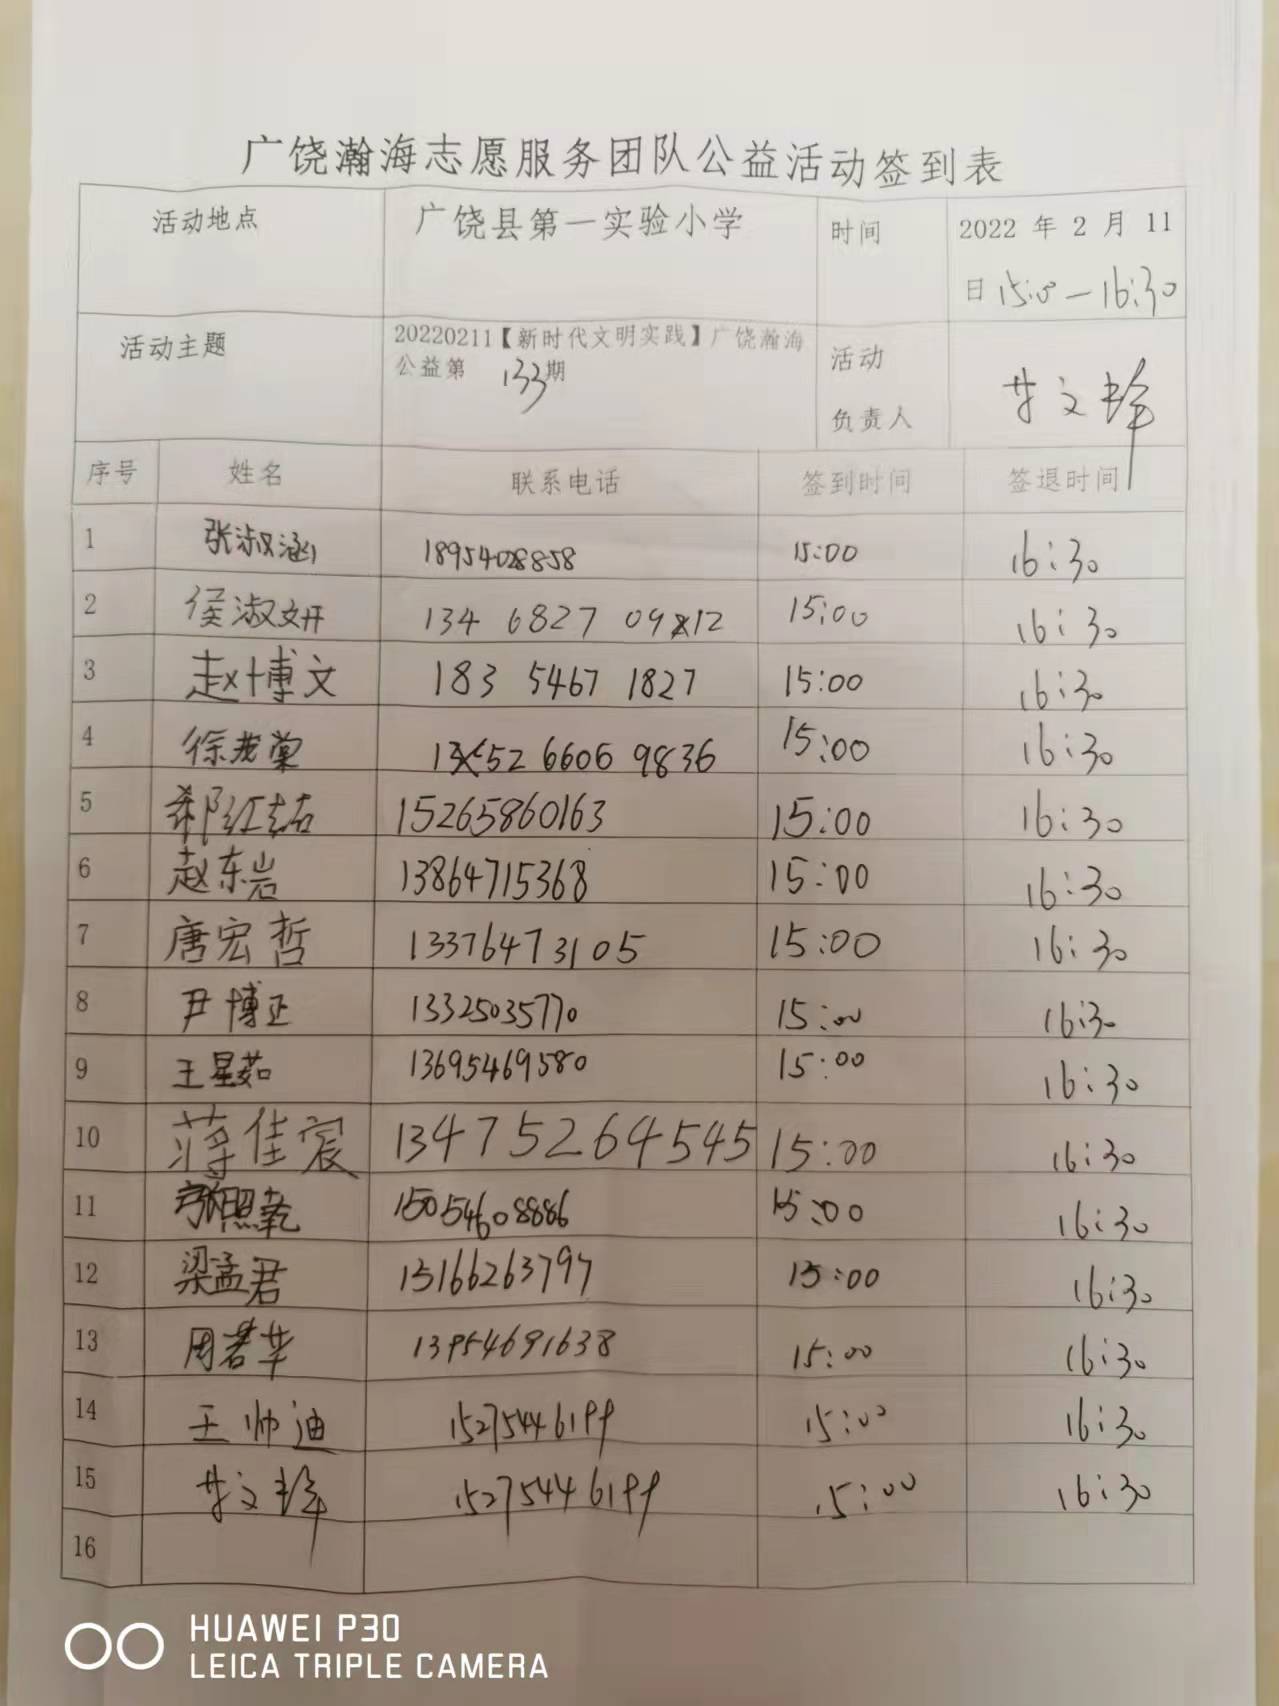 广饶瀚海志愿服务团队公益活动签到表
活动地点 广饶县第一实验小学 时间 2022 年 2 月 11
日 15:00—16:30
活动主题 20220211【新时代文明实践】广饶瀚海
公益第 133 期 活动
负责人
序号 姓名 联系电话 签到时间 签退时间
1 张淑涵 18954028858 15:00 16:30
2 侯淑妍 134 6827 0912 15:00 16:30
3 赵博文 183 5467 1827 15:00 16:30
4 152 6606 9836 15:00 16:30
5 15265860163 15:00 16:30
6 赵东岩 13864715368 15:00 16:30
7 唐宏哲 13376473105 15:00 16:30
8 尹博正 13325035770 15:00 16:30
9 王星茹 13695469580 15:00 16:30
10 蒋佳宸 13475264545 15:00 16:30
11 张照乾 15054608886 15:00 16:30
12 梁孟君 15166263797 15:00 16:30
13 周若华 13954691638 15:00 16:30
14 王帅迪 15275446199 15:00 16:30
15 15275446199 15:00 16:30
16
HUAWEI P30
LEICA TRIPLE CAMERA